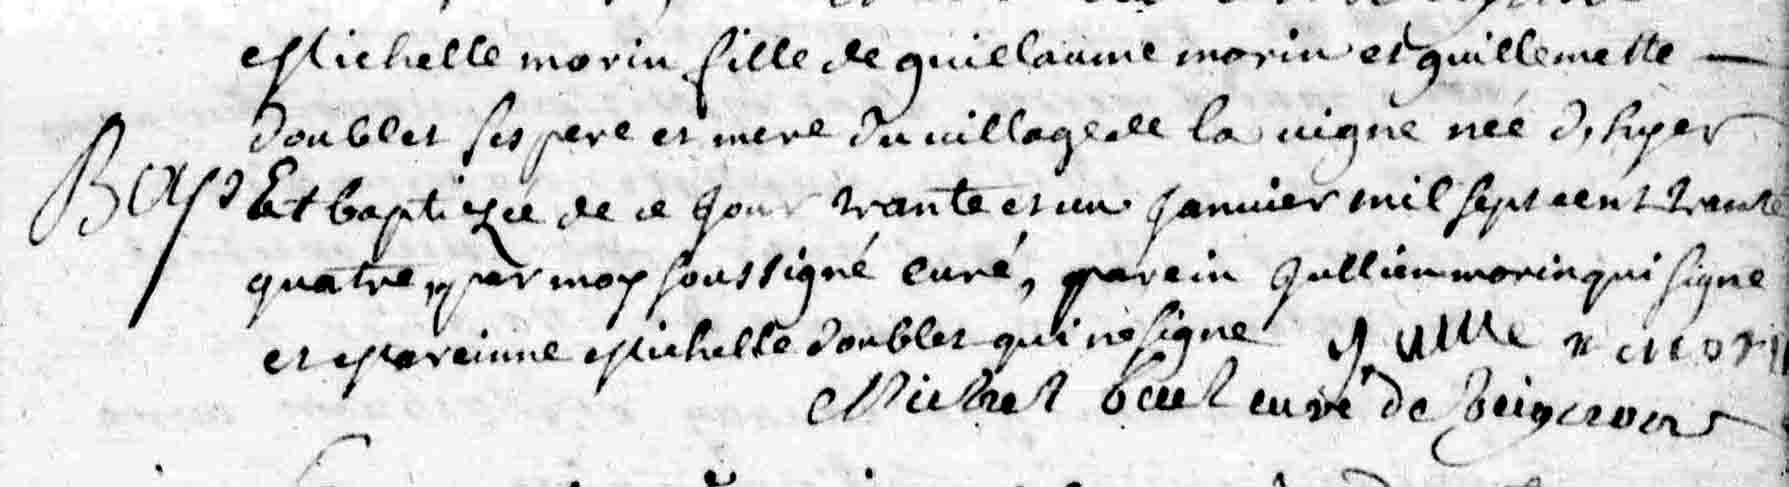 Michelle morin fille de guielaume morin et guillemette
doublet ses pere et mere du village de la vigne née d'hyer
Bap Et baptizée de ce jour trante et un janvier mil sept cent trante
quatre, par moy soussigné curé, parein Jullien morin qui signe
et Mareinne Michelle doublet qui ne signe Jullien mori
Michel curé de